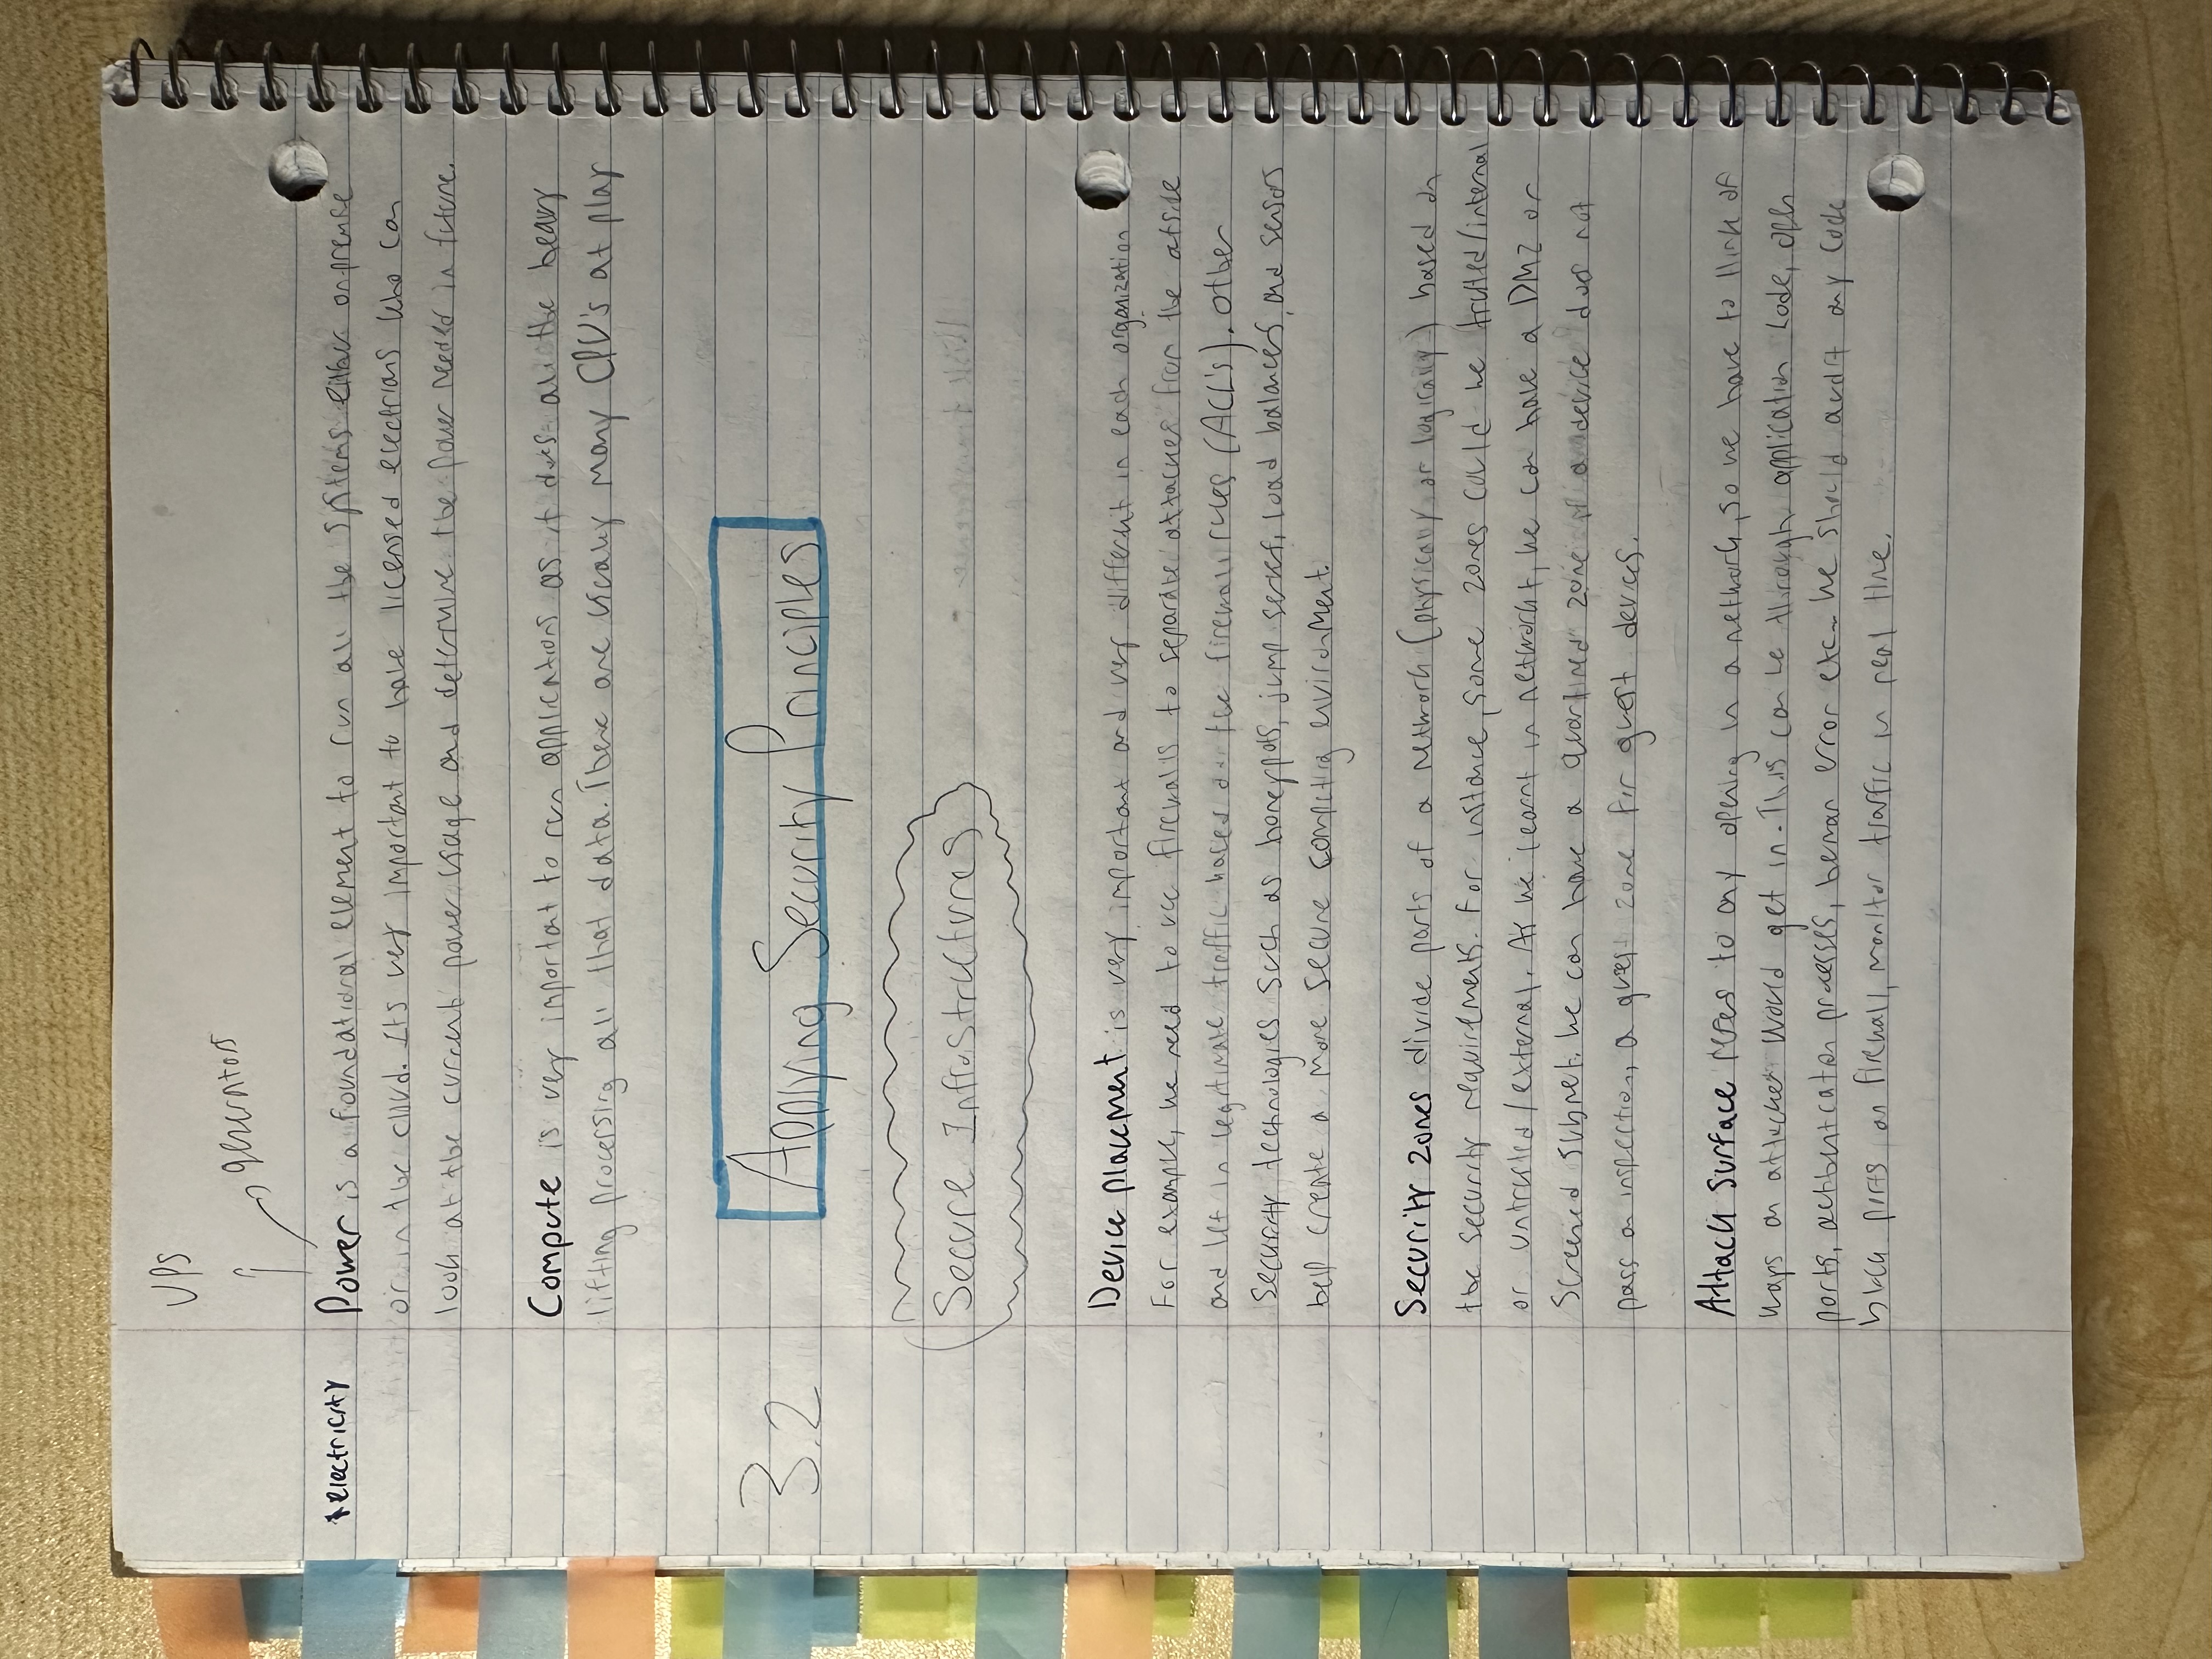 UPS
generators
*electricity
Power is a foundational element to run all the systems either onpremise
or in the cloud. Its very important to have licensed electrians who can
look at the current power usage and determine the power needed in future.
Compute is very important to run applications as it does all the heavy
lifting processing all that data. There are usually many CPU's at play
3.2
Applying Security Principles
Secure Infrustructures
Device placement is very important and very different in each organization
For example, we need to use firewalls to separate attackes from the
and let in legitimate traffic based on the firewall rules (ACL's). Other
security technologies such as honeypots, jump server, load balancers, and sensors
help create a more secure computing environment.
Security zones divide parts of a network (physically or logically) based on
the security requirements. For instance, some zones could be trusted/internal
or untrusted/external. As we learnt in network+, we can have a DMZ or
screened subnet. We can have a zone if a device does not
pass an inspection, a guest zone for guest devices.
Attack surface refes to any opening in a network, so we have to think of
ways an attacker would get in. This can be through application code, open
ports, processes, human error etc. We should audit any code
block ports on firewall, monitor traffic in real time.